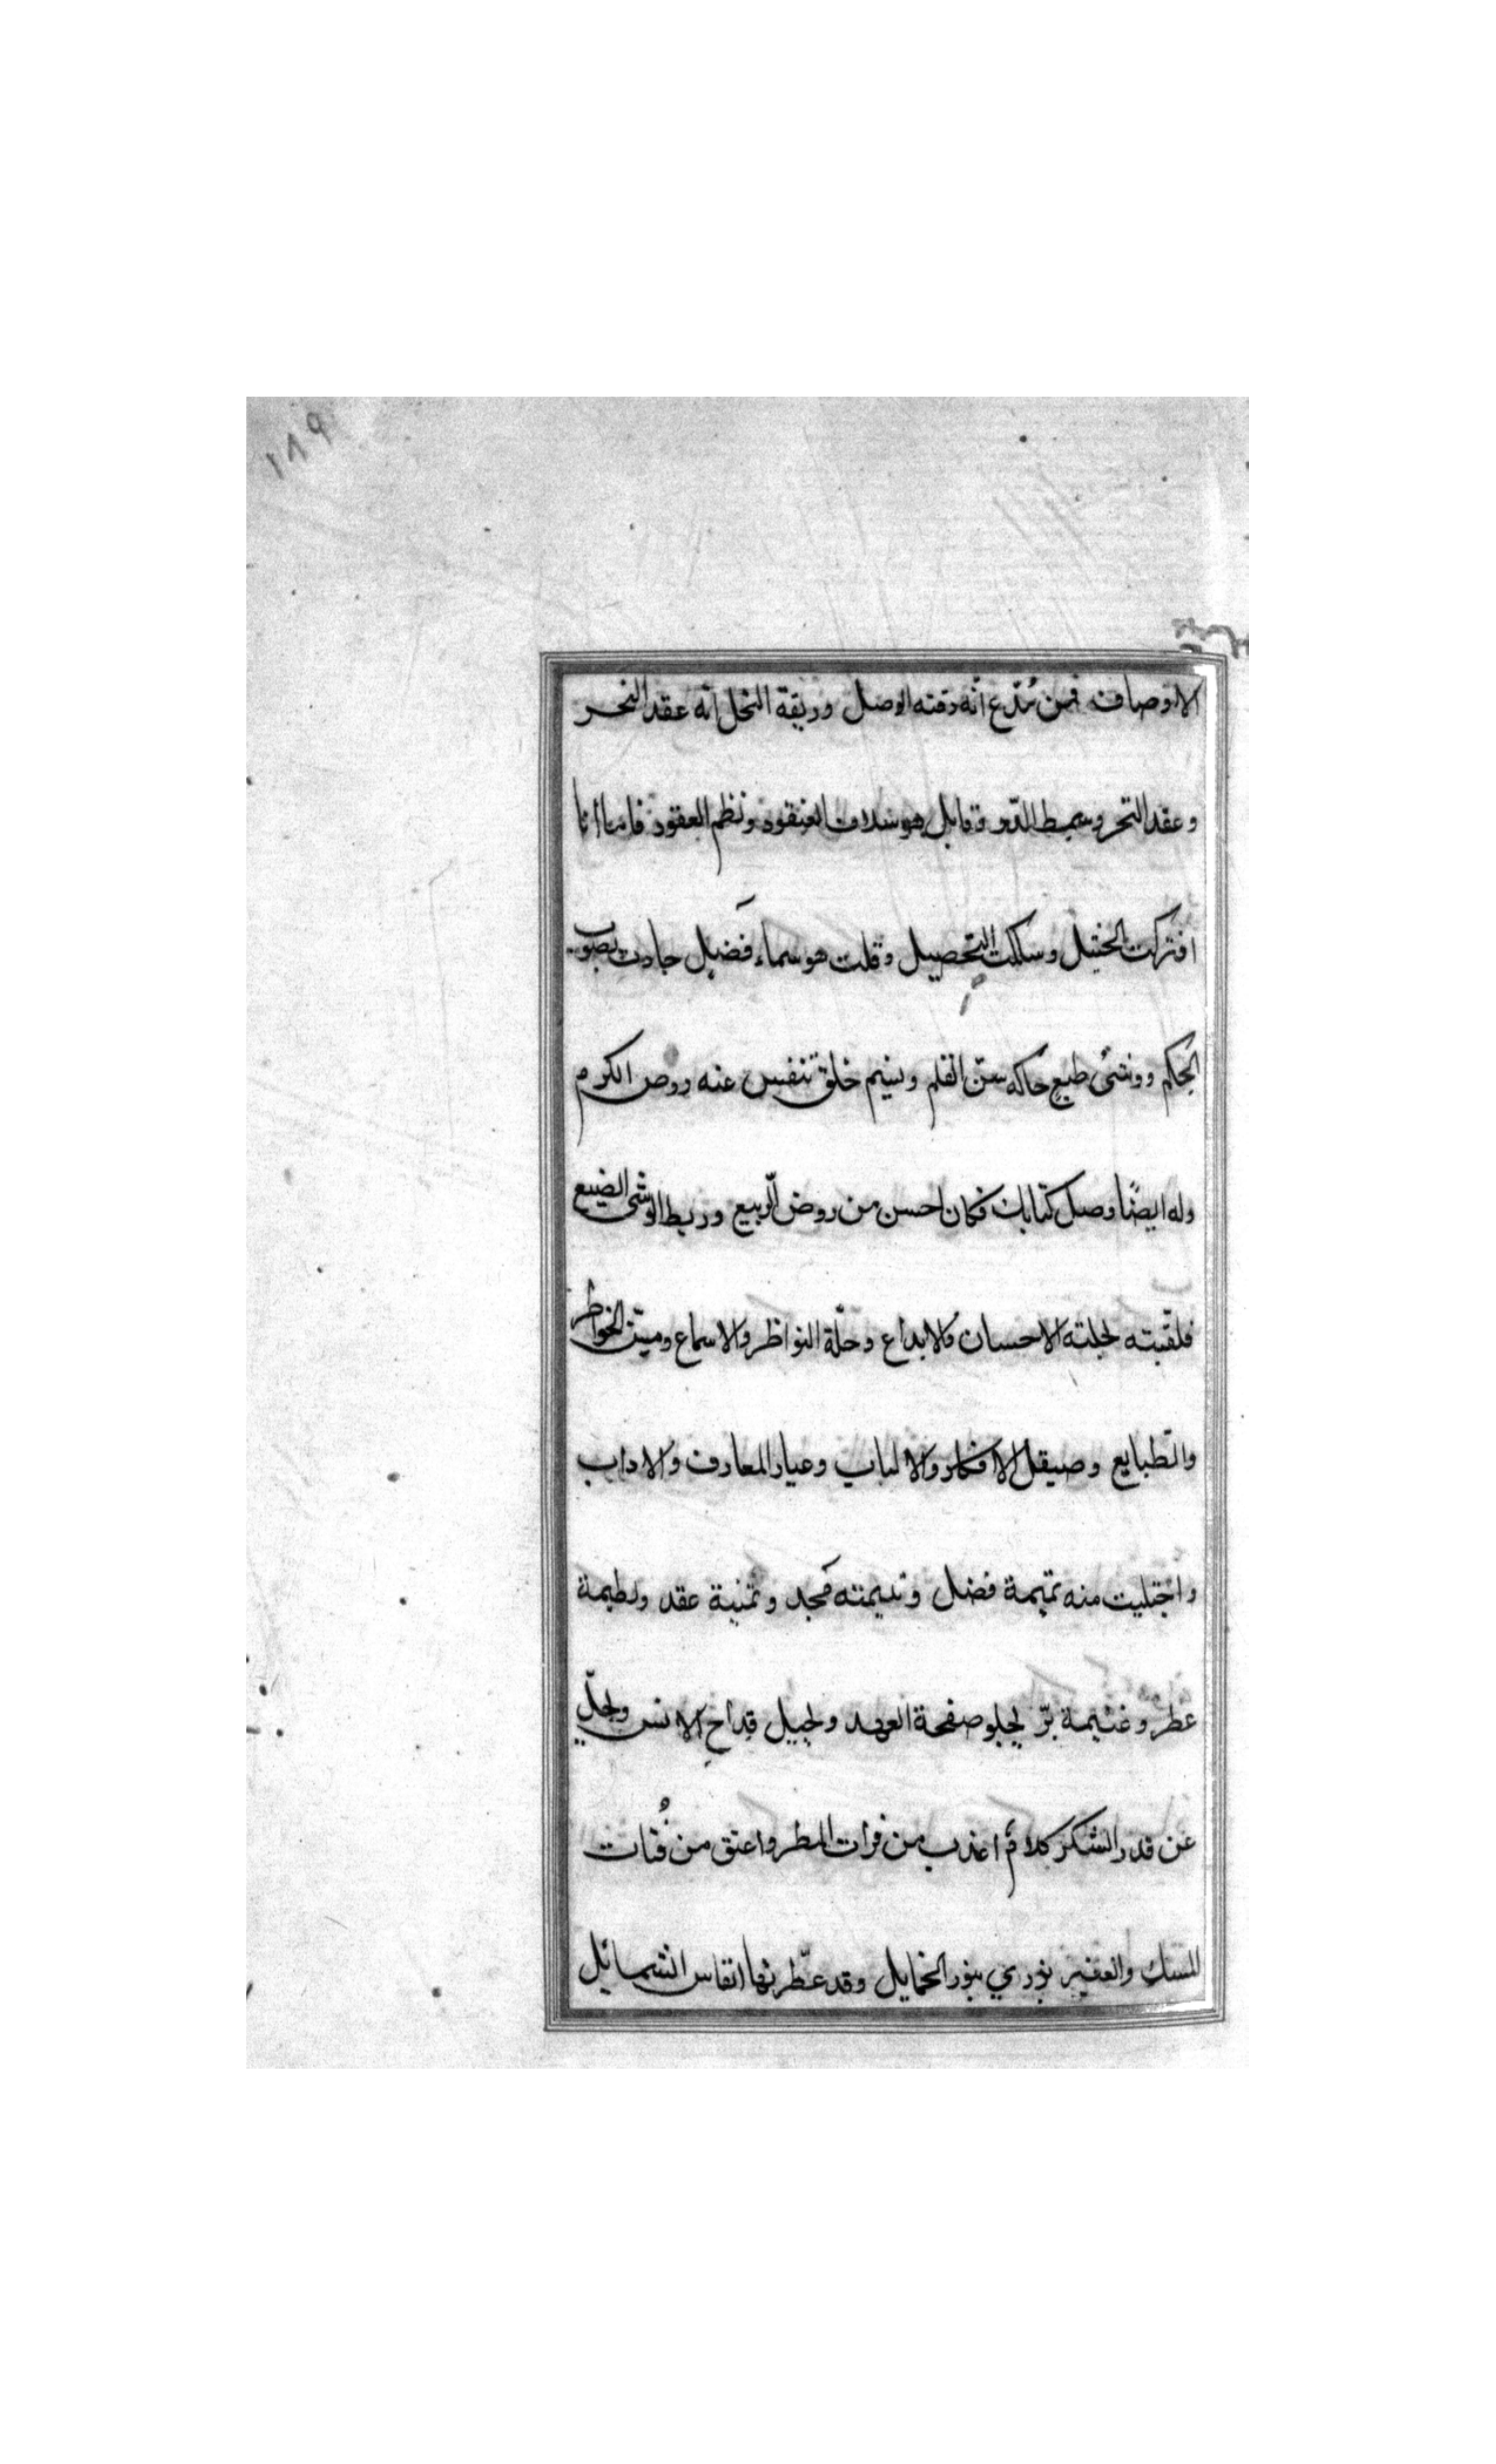 ١٨٩
الاوصاف فمن مدّع انّه رقته الوصل وريقة النحل انّه عقد النحر
وعقد النحر وسمط الدّر وقايل هو سلاف العنقود ونظم العقود فاما انا
افتركت الخيل وسلكت التحصيل وقلت هو سماء فضل جادت بصوب
الحكم ووشى طبع حاكه سنّ القلم ونسيم خلق تنفس عنه روض الكرم
وله ايضًا وصل كتابك فكان احسن من روض الربيع وريط الوشى الضيع
فلقّبته لجلته الاحسان والابداع وحلّة النواظر والاسماع وميت الخواطر
والطبايع وصيقل الافكار والالباب وعيار المعارف والاداب
واجتليت منه تميمة فضل ويتيمته مجد وثمنية عقد ولطيمة
عطر وغنيمة برّ لجلو صفحة العهد ولجيل قداح الانس ولجلّ
عن قدر الشكر كلام اعذب من فرات المطر واعتق من فُتات
المسك والعنبر يزري بنور الخمايل وقد عطّرتها انفاس الشمائل